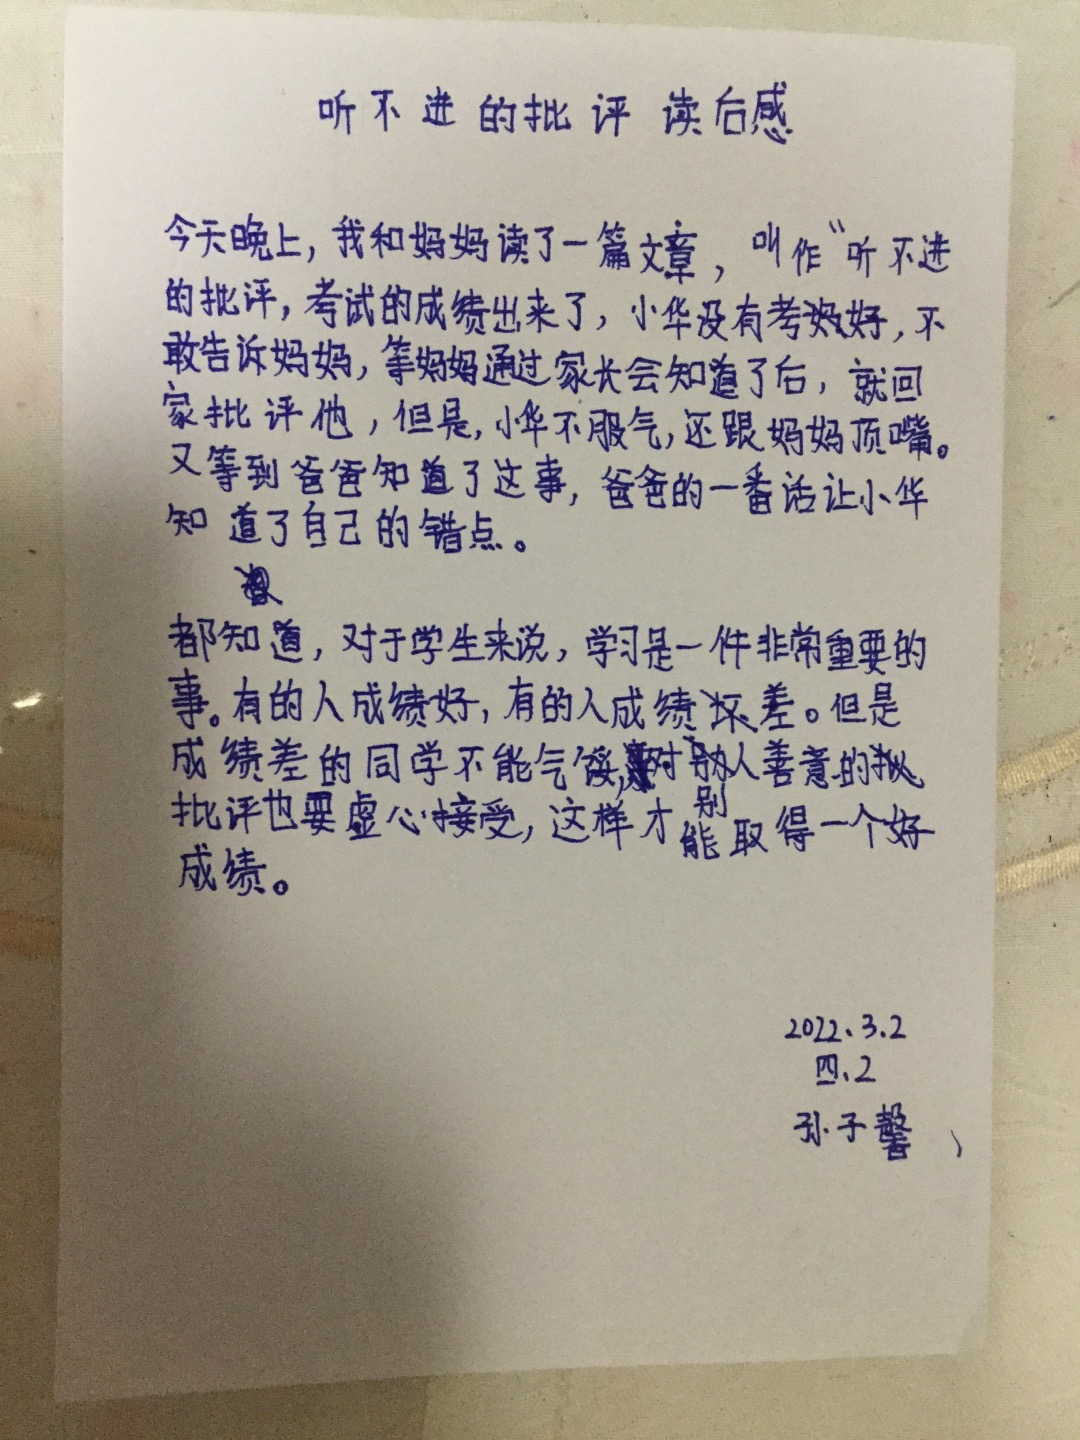 听不进的批评 读后感
今天晚上，我和妈妈读了一篇文章，叫作“听不进
的批评，考试的成绩出来了，小华没有考好，不
敢告诉妈妈，等妈妈通过家长会知道了后，就回
家批评他，但是，小华不服气，还跟妈妈顶嘴。
又等到爸爸知道了这事，爸爸的一番话让小华
知道了自己的错点。
都知道，对于学生来说，学习是一件非常重要的
事。有的人成绩好，有的人成绩坏差。但是
成绩差的同学不能气馁，对别人善意的批
批评也要虚心接受，这样才能取得一个好
别
成绩。
2022.3.2
四.2
孙子馨